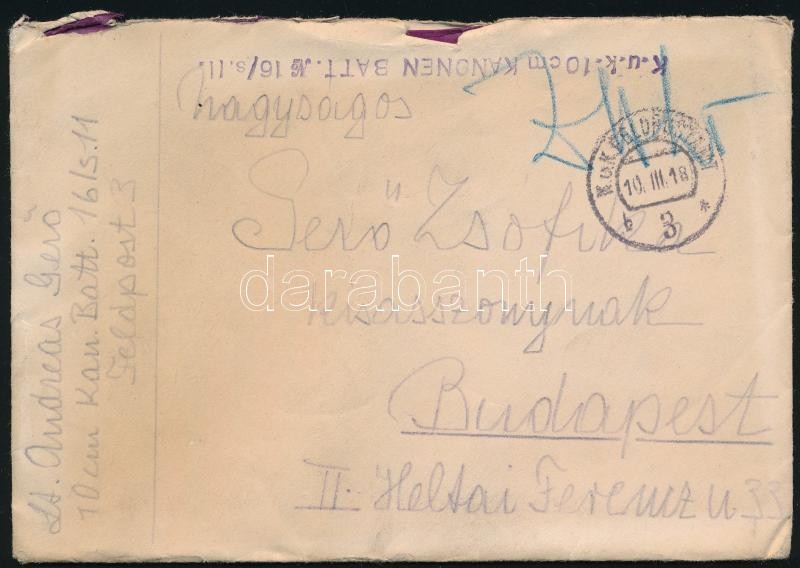 K.u.k. 10cm KANONEN BATT. № 16/s.II.
Nagyságos
Gerő Zsófika
kisasszonynak
Budapest
II. Heltai Ferencz u 33
K.u.K. FELDPOSTAMT
10. III. 18
b 3 *
Lt. Andreas Gerő
10cm Kan. Batt. 16/s.11
Feldpost 3
darabanth